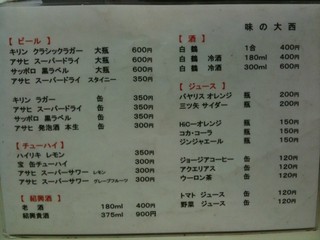 味の大西
【ビール】
キリン クラシックラガー 大瓶 600円
アサヒ スーパードライ 大瓶 600円
サッポロ 黒ラベル 大瓶 600円
アサヒ スーパードライ スタイニー 350円
キリン ラガー 缶 350円
アサヒ スーパードライ 缶 350円
サッポロ 黒ラベル 缶 350円
アサヒ 発泡酒 本生 缶 300円
【チューハイ】
ハイリキ レモン 350円
宝 缶チューハイ 300円
アサヒ スーパーサワー レモン 300円
アサヒ スーパーサワー グレープフルーツ 300円
【紹興酒】
老酒 180ml 400円
紹興貴酒 375ml 900円
【酒】
白鶴 1合 400円
白鶴 冷酒 180ml 400円
白鶴 冷酒 300ml 600円
【ジュース】
バヤリス オレンジ 瓶 200円
三ツ矢 サイダー 瓶 200円
HiCーオレンジ 瓶 200円
コカ・コーラ 瓶 200円
ジンジャエール 瓶 200円
ジョージアコーヒー 缶 120円
アクエリアス 缶 120円
ウーロン茶 缶 120円
トマト ジュース 缶 120円
野菜 ジュース 缶 120円